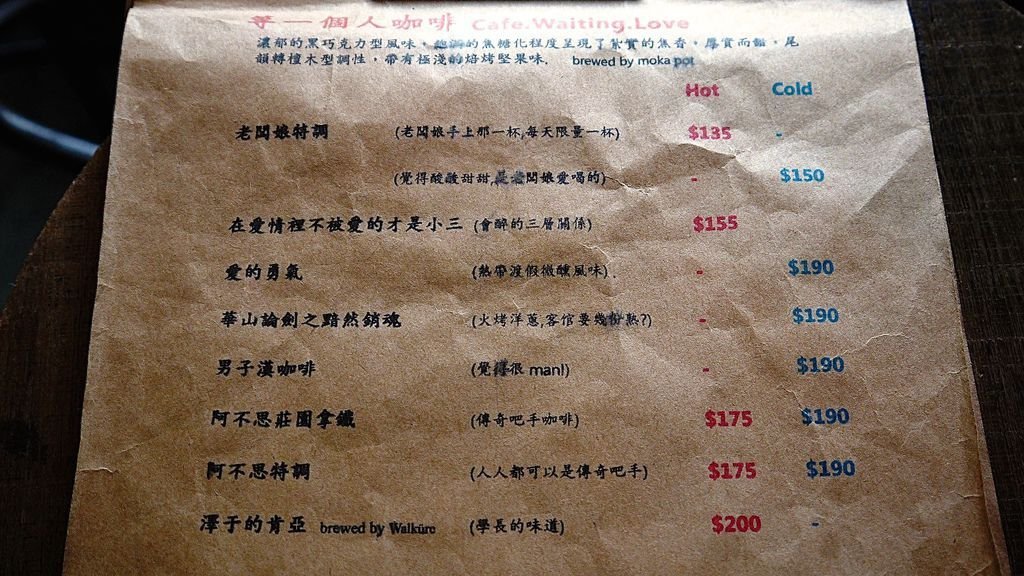 等一個人咖啡 Cafe.Waiting.Love
濃郁的黑巧克力型風味，飽滿的焦糖化程度呈現了紮實的焦香，厚實而豔，尾
韻轉檀木型調性，帶有極淺的焙烤堅果味． brewed by moka pot
Hot Cold
老闆娘特調 (老闆娘手上那一杯,每天限量一杯) $135 -
(覺得酸酸甜甜,是老闆娘愛喝的) - $150
在愛情裡不被愛的才是小三 (會醉的三層關係) $155
愛的勇氣 (熱帶渡假微醺風味). - $190
華山論劍之黯然銷魂 (火烤洋蔥,客倌要幾分熟?) - $190
男子漢咖啡 (覺得很 man!) - $190
阿不思莊園拿鐵 (傳奇吧手咖啡) $175 $190
阿不思特調 (人人都可以是傳奇吧手) $175 $190
澤于的肯亞 brewed by Walküre (學長的味道) $200 -